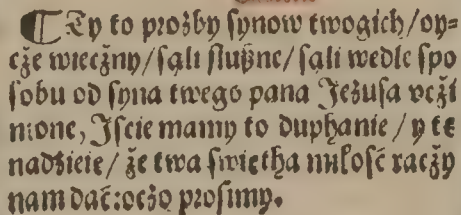 ¶ Ty to prośby synow twogich/oy⸗
cże wiecżny/sąli słußne/sąli wedle spo
sobu od syna twego pana Jezusa vcżi
nione, Jscie mamy to duphanie/y tę
nadzieie/że twa swiętha miłosć racży
nam dać:ocżo prosimy.